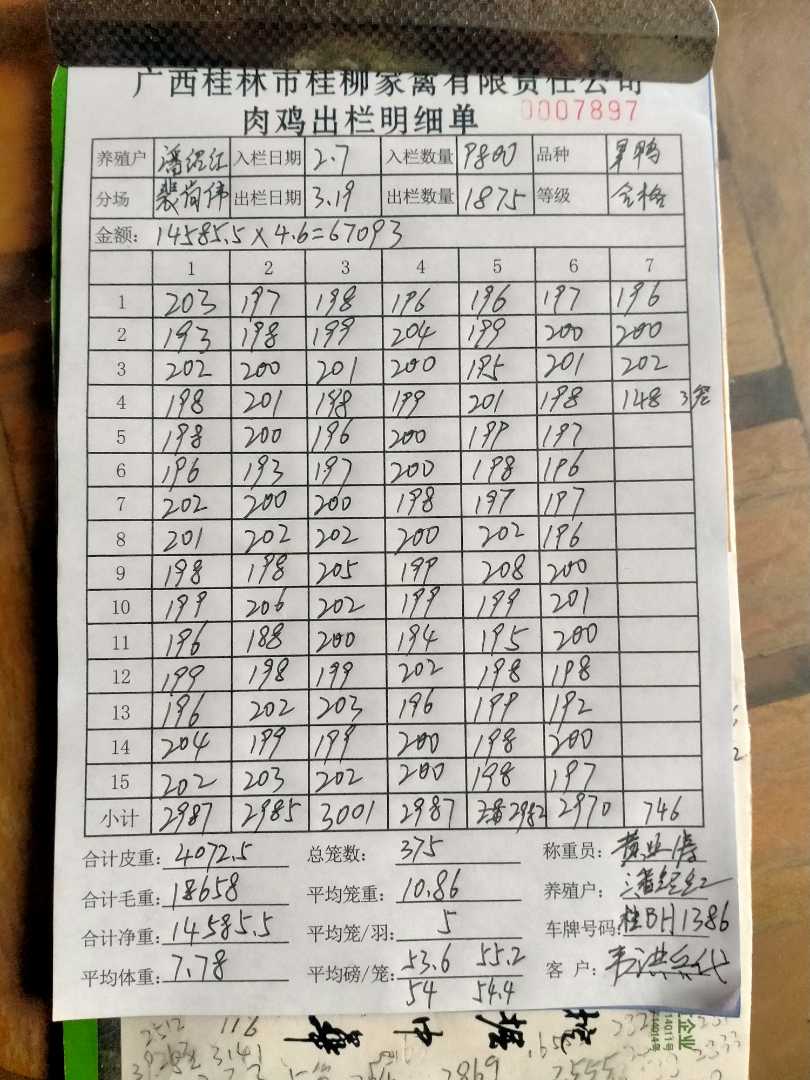 广西桂林市桂柳家禽有限责任公司
肉鸡出栏明细单 0007897
养殖户 潘经红 入栏日期 2.7 入栏数量 9800 品种
分场 裴尚伟 出栏日期 3.19 出栏数量 1875 等级 合格
金额: 14585.5×4.6=67093
1 2 3 4 5 6 7
1 203 197 198 196 196 197 196
2 193 198 199 204 199 200 200
3 202 200 201 200 195 201 202
4 198 201 198 199 201 198 148 3笼
5 198 200 196 200 199 197
6 196 193 197 200 198 196
7 202 200 200 198 197 197
8 201 202 202 200 202 196
9 198 198 205 199 208 200
10 199 206 202 199 199 201
11 196 188 200 194 195 200
12 199 198 199 202 198 198
13 196 202 203 196 199 192
14 204 199 199 200 198 200
15 202 203 202 200 198 197
小计 2987 2985 3001 2987 2982 2970 746
合计皮重: 4072.5 总笼数: 375 称重员:
合计毛重: 18658 平均笼重: 10.86 养殖户: 潘经红
合计净重: 14585.5 平均笼/羽: 5 车牌号码: 桂BH1386
平均体重: 7.78 平均磅/笼: 53.6 55.2 客户:
54 54.4